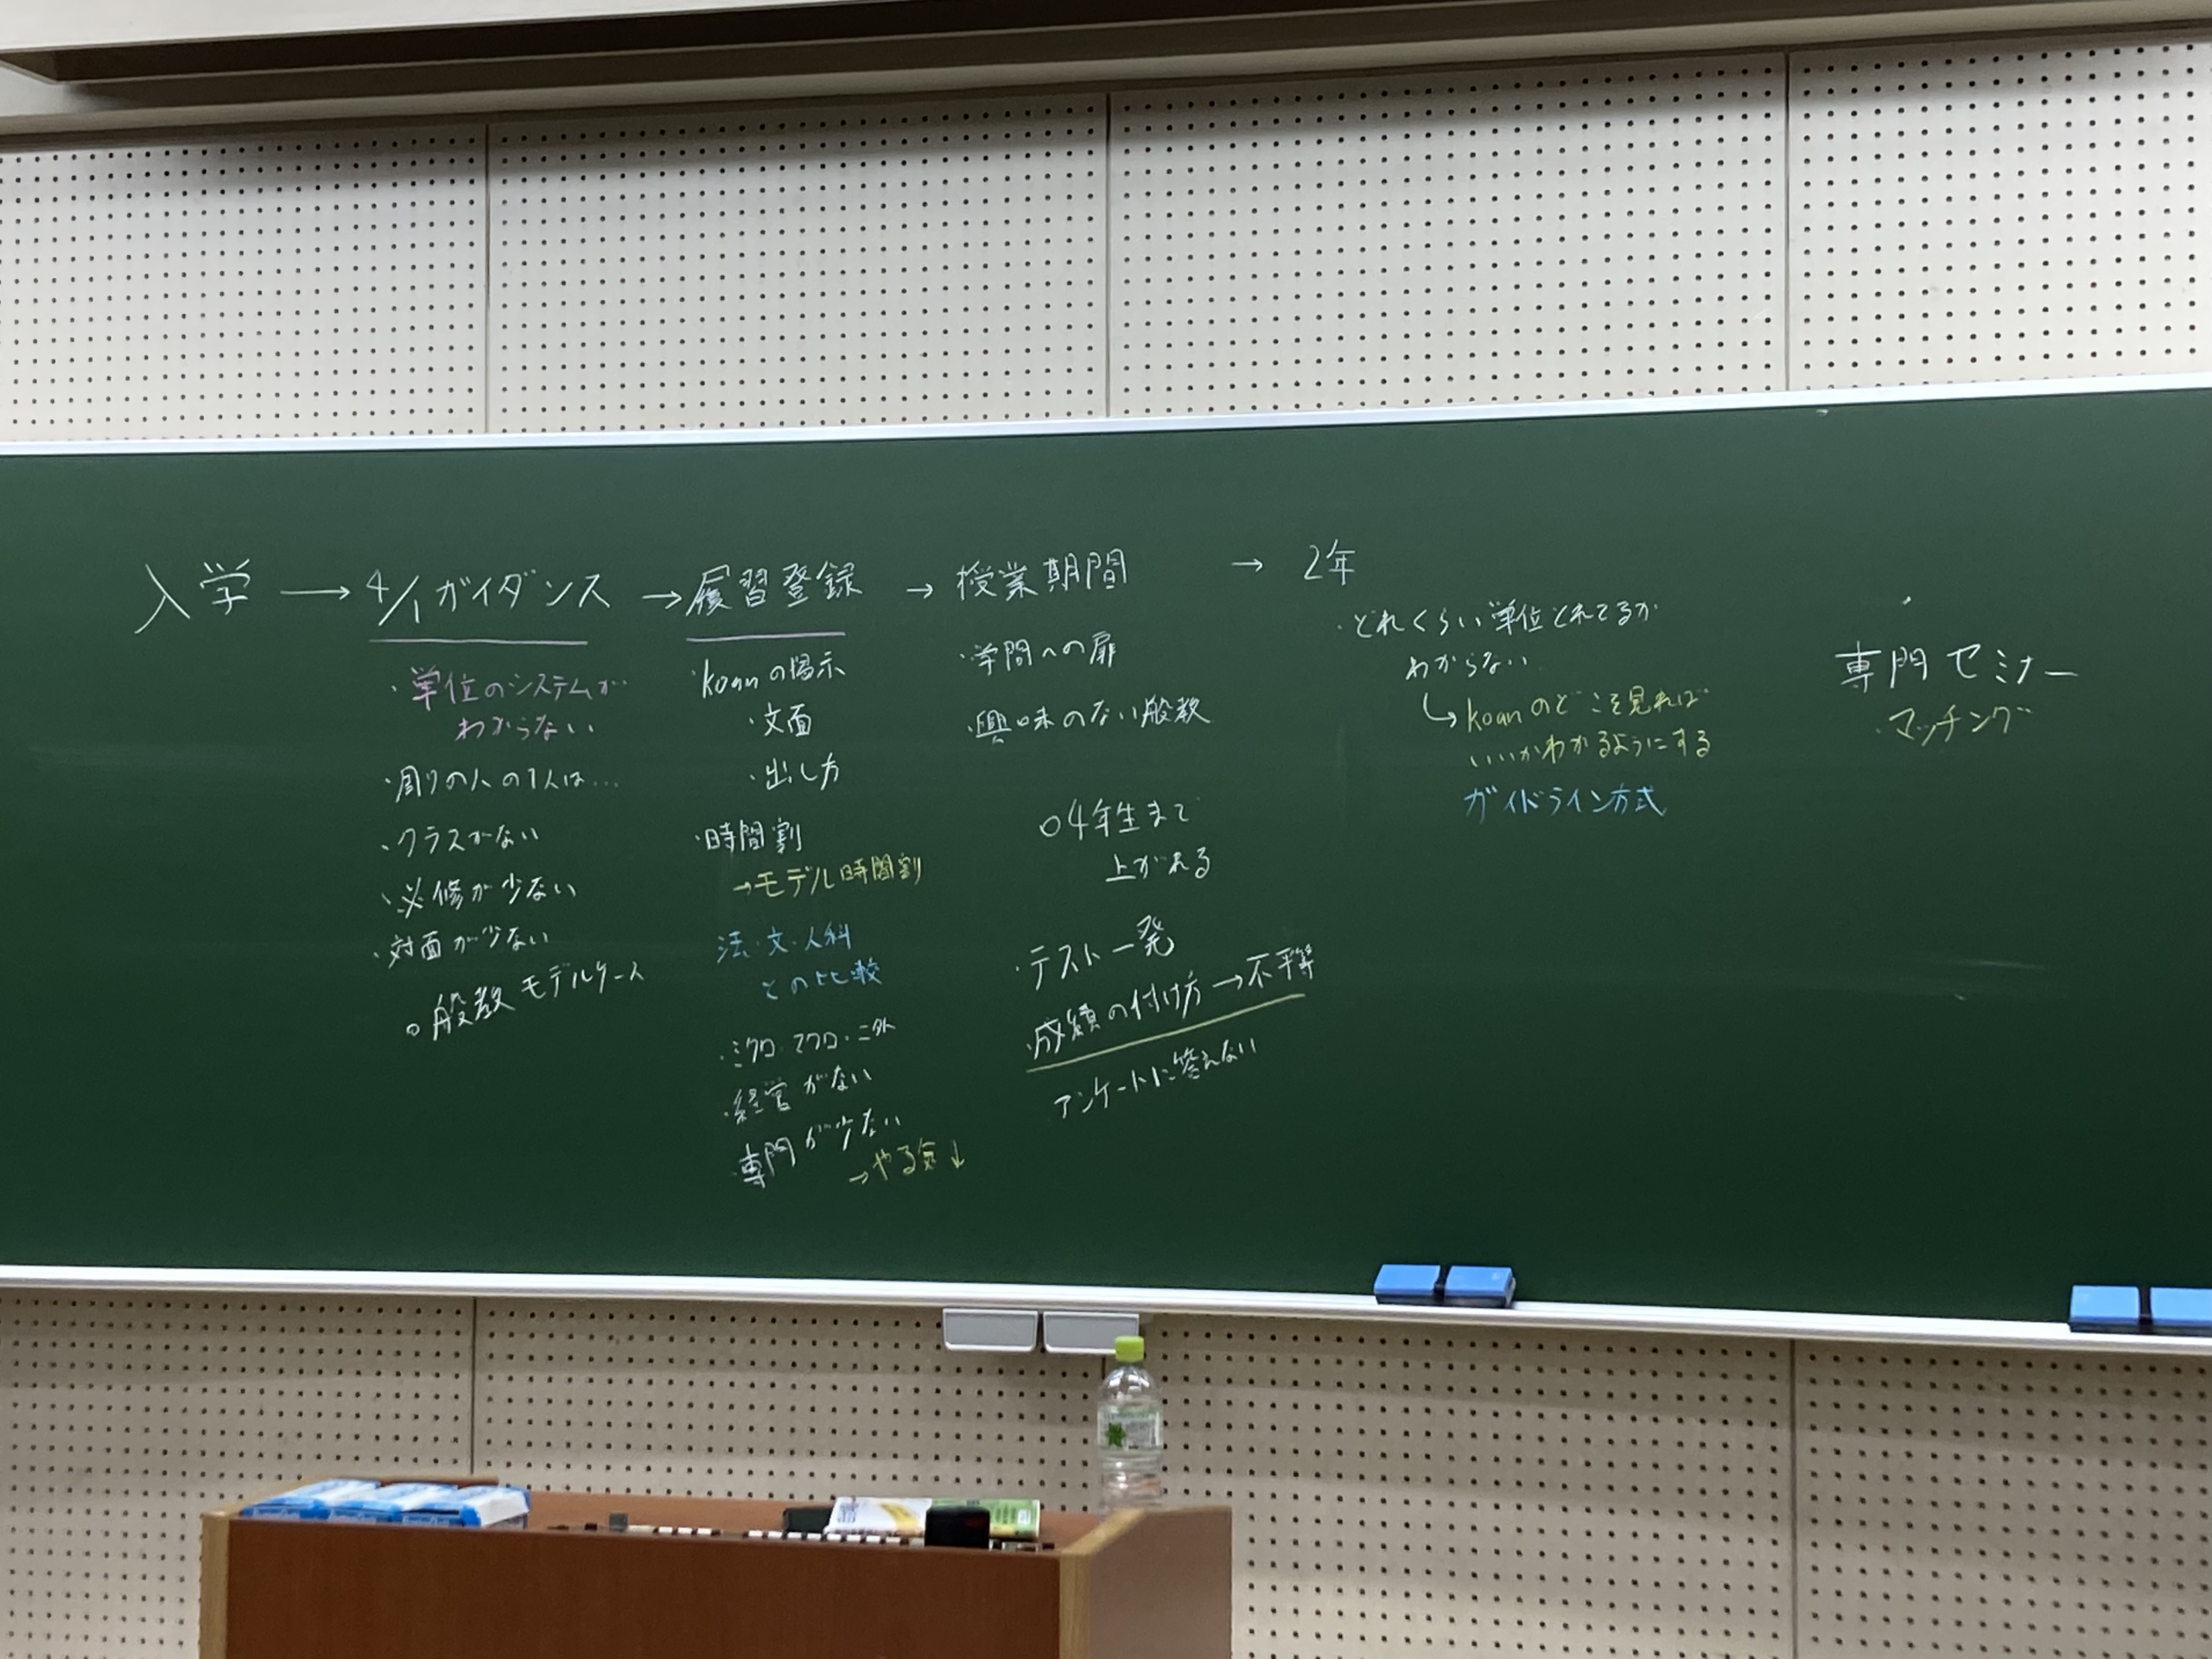 入学 → 4/1ガイダンス → 履習登録 → 授業期間 → 2年
・単位のシステムが
わからない
・周りの人の1人は…
・クラスがない
・必修が少ない
・対面が少ない
○般教モデルケース
・koanの掲示
・文面
・出し方
・時間割
→モデル時間割
法・文・人科
との比較
・ミクロ・マクロ・二外
・経営がない
・専門が少ない
→やる気↓
・学問への扉
・興味のない般教
○4年生まで
上がれる
・テスト一発
・成績の付け方→不平等
アンケートに答えない
・どれくらい単位とれてるか
わからない
↳koanのどこを見れば
いいかわかるようにする
ガイドライン方式
専門セミナー
・マッチング